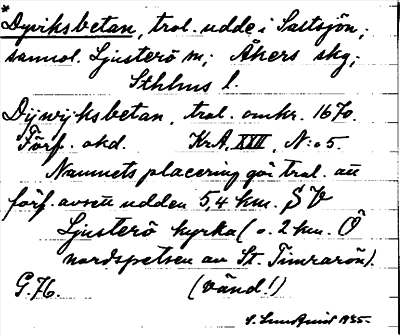 *
Dyviksbetan, trol. udde i Saltsjön;
sannol. Ljusterö sn; Åkers skg;
Sthlms l.
Dÿwÿksbetan, trol. omkr. 1670.
Förf. okd. KrA, XXII, N:o 5.
Namnets placering gör trol. att
förf. avsett udden 5,4 km. SV
Ljusterö kyrka (o. 2 km. Ö
nordspetsen av St. Timrarön).
G.76. (Vänd!)
S. 1935.